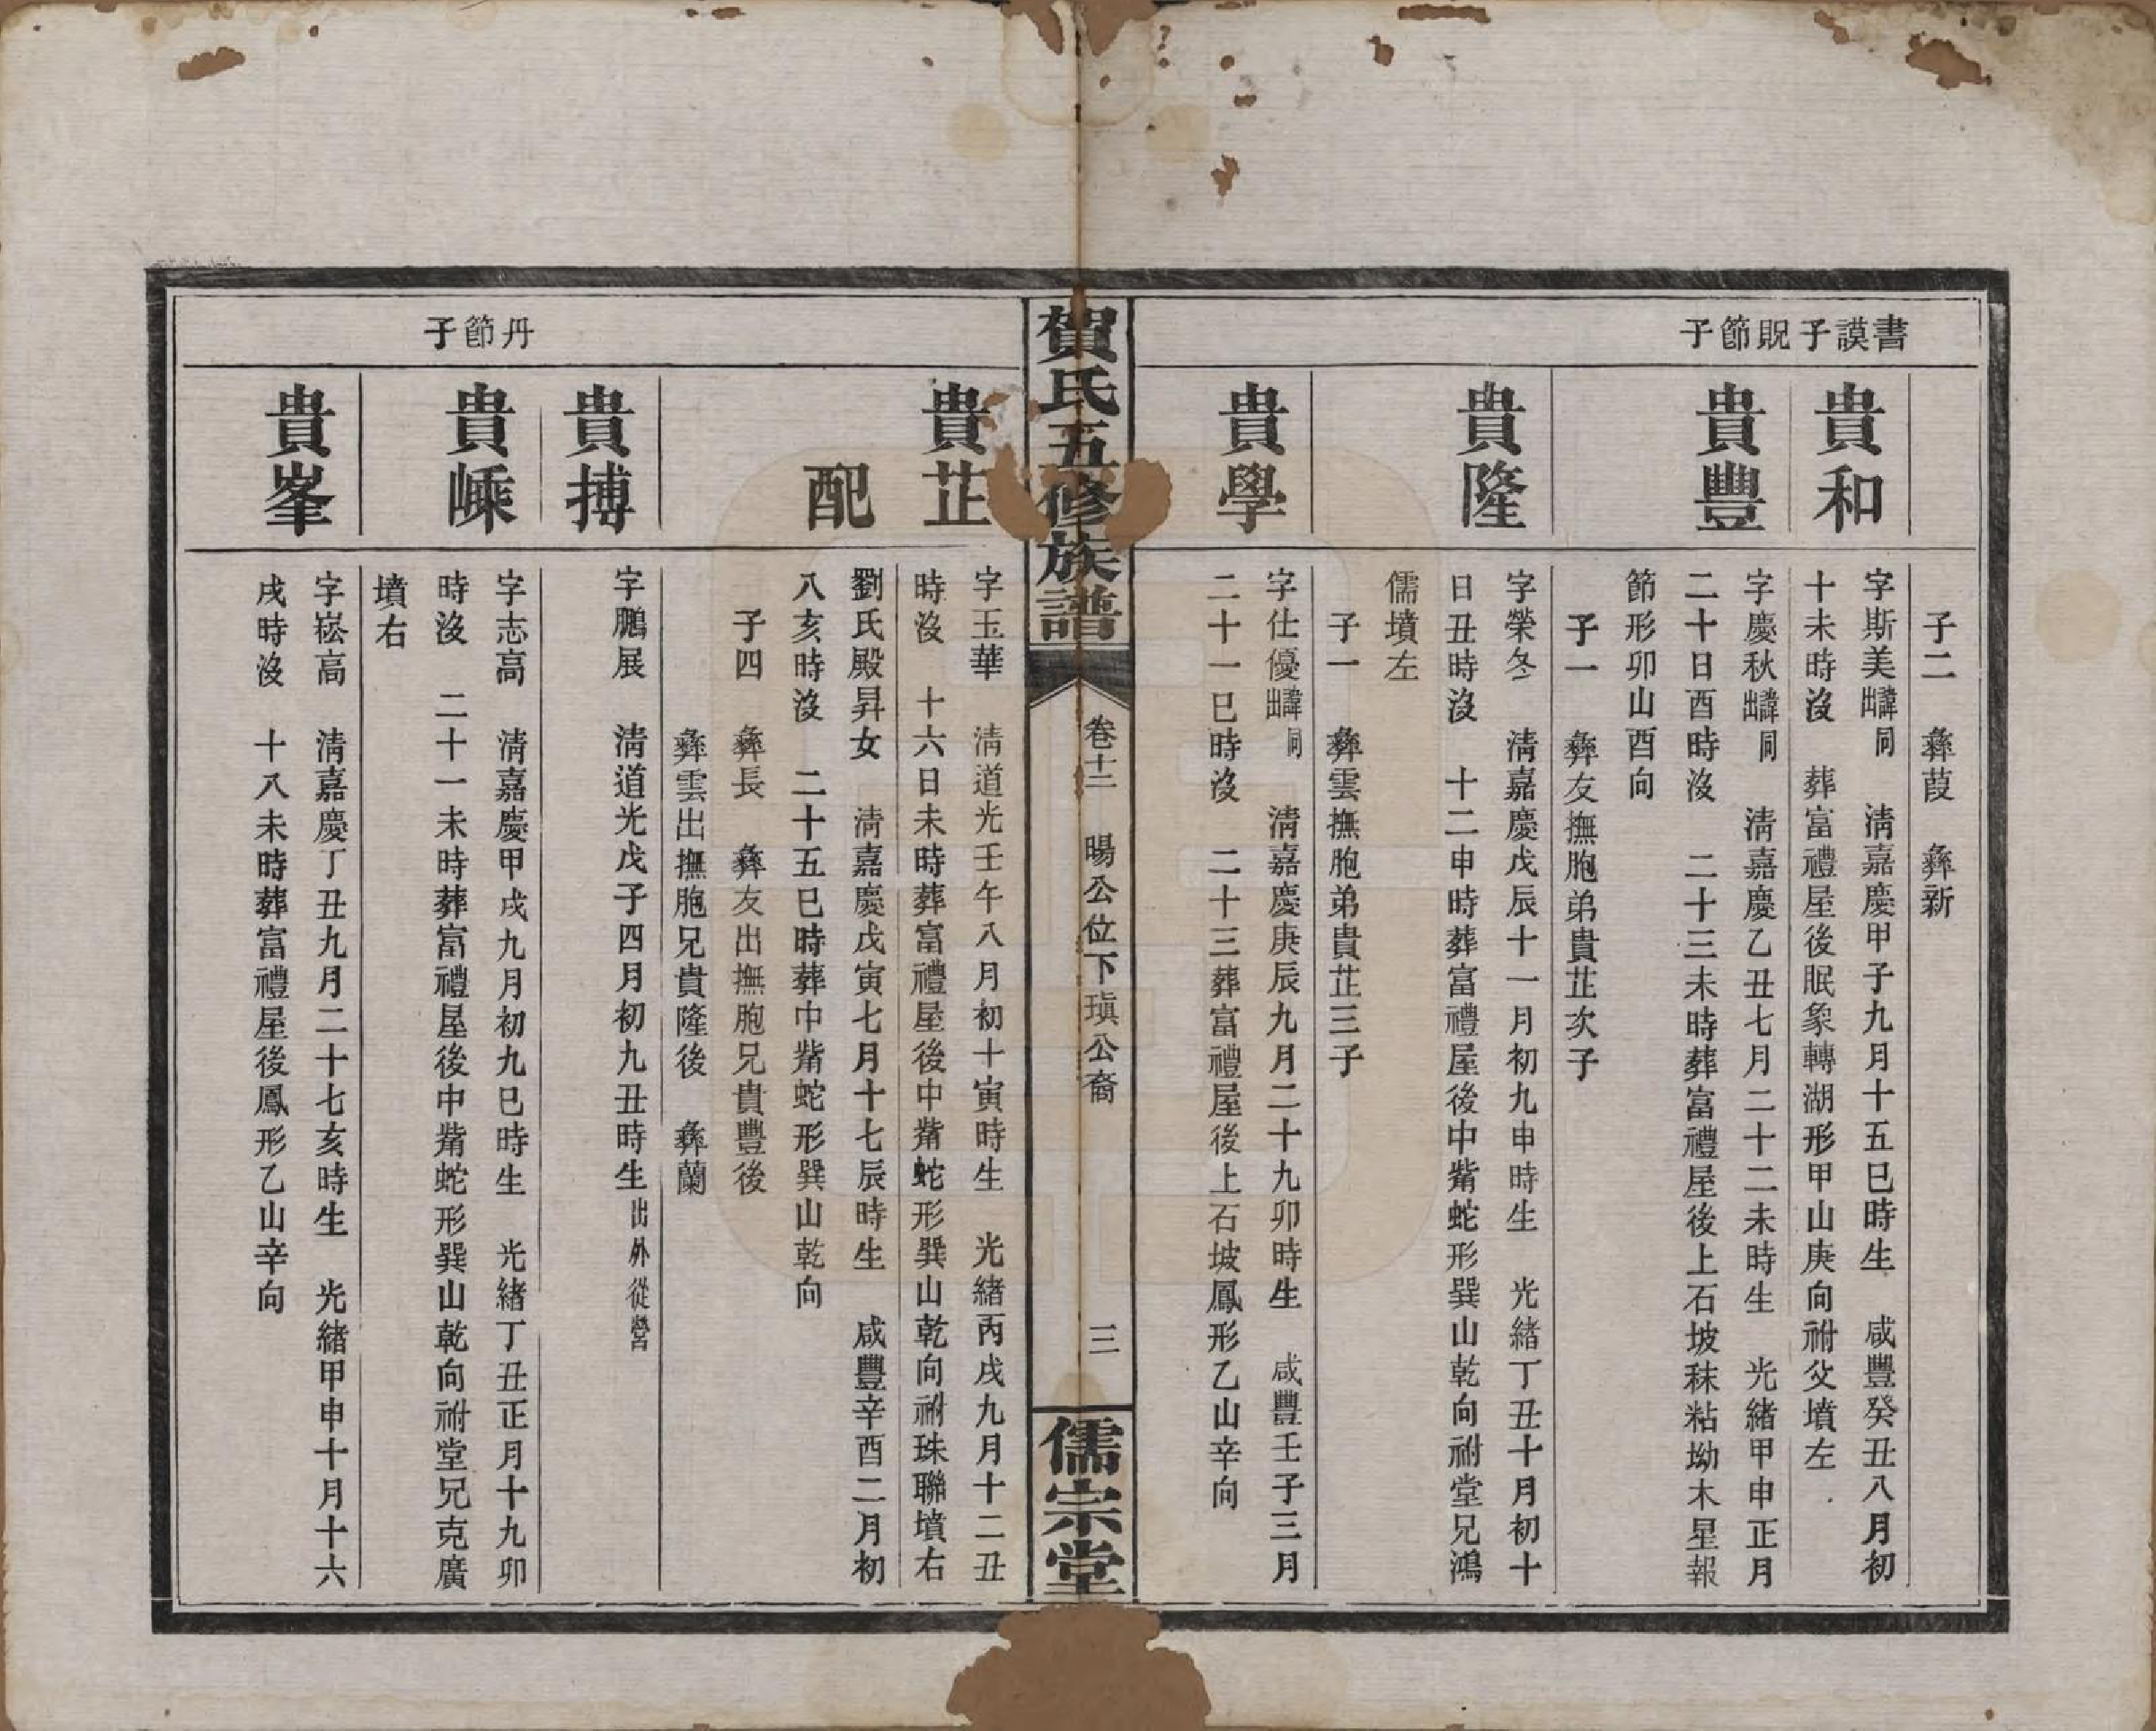 書謨子貺節子
子二　彝葭　彝新
貴和
字斯美諱出同　清嘉慶甲子九月十五巳時生　咸豐癸丑八月初
十未時沒　葬富禮屋後眠象轉湖形甲山庚向祔父墳左
貴豐
字慶秋諱出同　清嘉慶乙丑七月二十二未時生　光緒甲申正月
二十日酉時沒　二十三未時葬富禮屋後上石坡秣粘坳木星報
節形卯山酉向
子一　彝友撫胞弟貴芷次子
貴隆
字榮冬　清嘉慶戊辰十一月初九申時生　光緒丁丑十月初十
日丑時沒　十二申時葬富禮屋後中觜蛇形巽山乾向祔堂兄鴻
儒墳左
子一　彝雲撫胞弟貴芷三子
貴學
字仕優諱出同　清嘉慶庚辰九月二十九卯時生　咸豐壬子三月
二十一巳時沒　二十三葬富禮屋後上石坡鳳形乙山辛向
賀氏五修族譜
卷十二　暘公位下瑱公裔
三
儒宗堂
貴芷
字玉華　清道光壬午八月初十寅時生　光緒丙戌九月十二丑
時沒　十六日未時葬富禮屋後中觜蛇形巽山乾向祔珠聯墳右
配
劉氏殿昇女　清嘉慶戊寅七月十七辰時生　咸豐辛酉二月初
八亥時沒　二十五巳時葬中觜蛇形巽山乾向
子四　彝長　彝友出撫胞兄貴豐後
彝雲出撫胞兄貴隆後　彝蘭
丹節子
貴搏
字鵬展　清道光戊子四月初九丑時生出外從營
貴嵊
字志高　清嘉慶甲戌九月初九巳時生　光緒丁丑正月十九卯
時沒　二十一未時葬富禮屋後中觜蛇形巽山乾向祔堂兄克廣
墳右
貴峯
字崧高　清嘉慶丁丑九月二十七亥時生　光緒甲申十月十六
戌時沒　十八未時葬富禮屋後鳳形乙山辛向